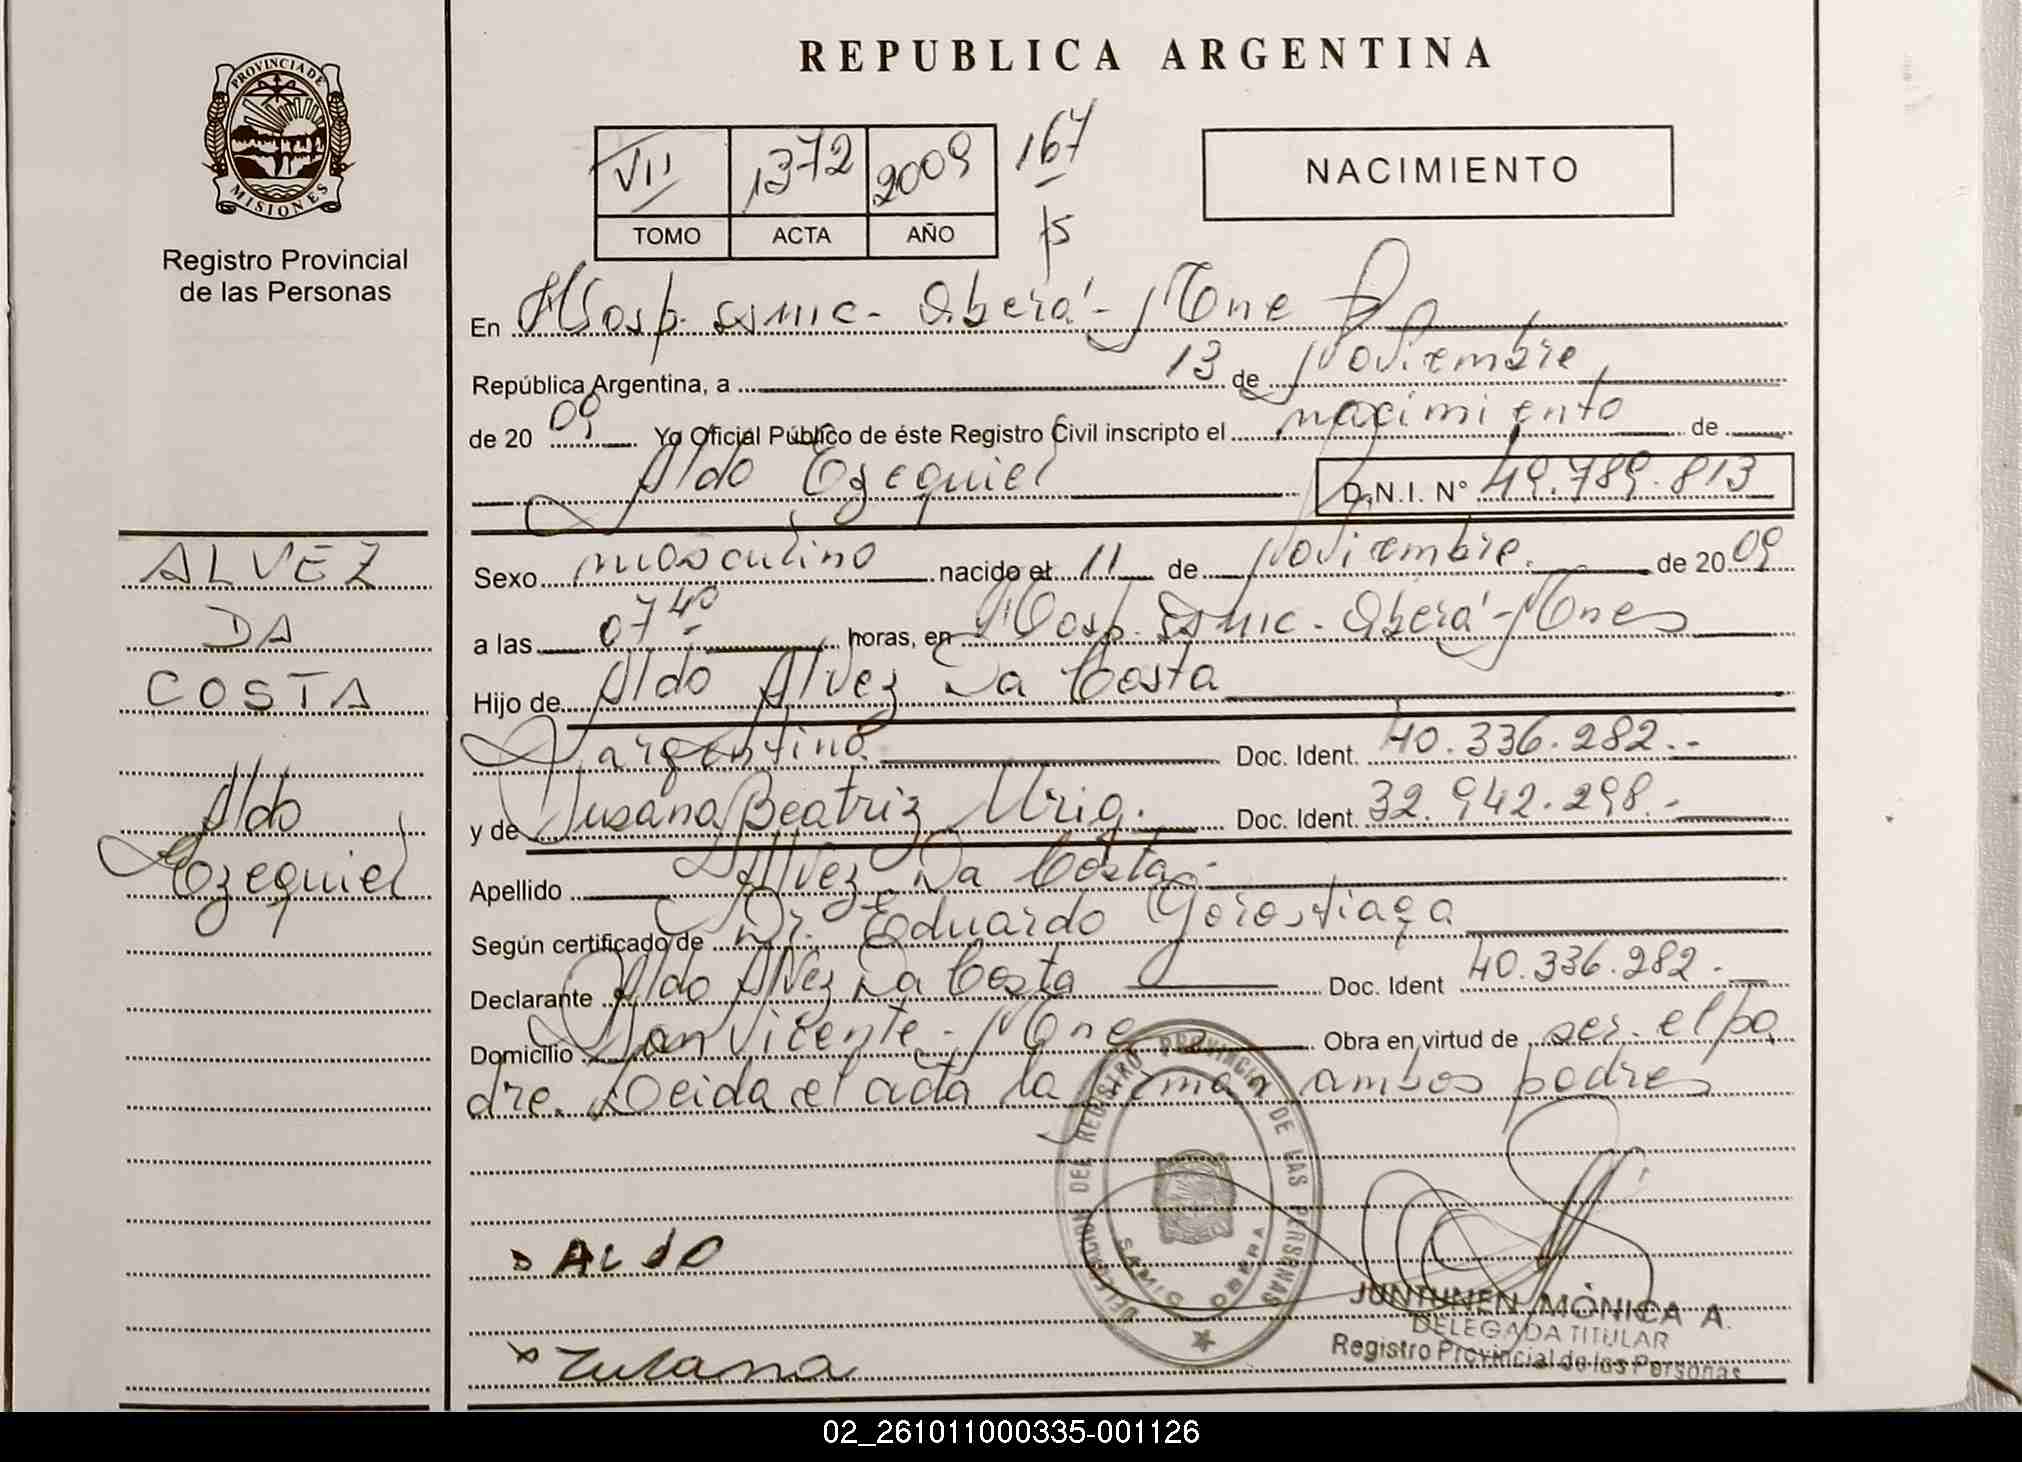 REPUBLICA ARGENTINA
PROVINCIA DE MISIONES
Registro Provincial
de las Personas
VII 1372 2009 167
TOMO ACTA AÑO
NACIMIENTO
En Hosp. Samic - Oberá - Mnes
República Argentina, a 13 de Noviembre
de 20 09 Yo Oficial Público de éste Registro Civil inscripto el nacimiento de
Aldo Ezequiel D.N.I. N° 49.789.813
ALVEZ
DA
COSTA
Aldo
Ezequiel
Sexo masculino nacido el 11 de Noviembre de 20 09
a las 07 40 horas, en Hosp. Samic - Oberá - Mnes
Hijo de Aldo Alvez Da Costa
argentino Doc. Ident. 40.336.282.-
y de Susana Beatriz Doc. Ident. 32.942.298.-
Apellido Alvez Da Costa.-
Según certificado de Dr. Eduardo Gorostiaga
Declarante Aldo Alvez Da Costa Doc. Ident 40.336.282.-
Domicilio San Vicente - Mnes Obra en virtud de ser el pa
dre. Leida el acta la firman ambos padres
DELEGACION DEL REGISTRO PROVINCIAL DE LAS PERSONAS
SAMIC OBERA
x ALdO
x Susana
JUNTUNEN MÓNICA A.
DELEGADA TITULAR
Registro Provincial de las Personas
02_261011000335-001126